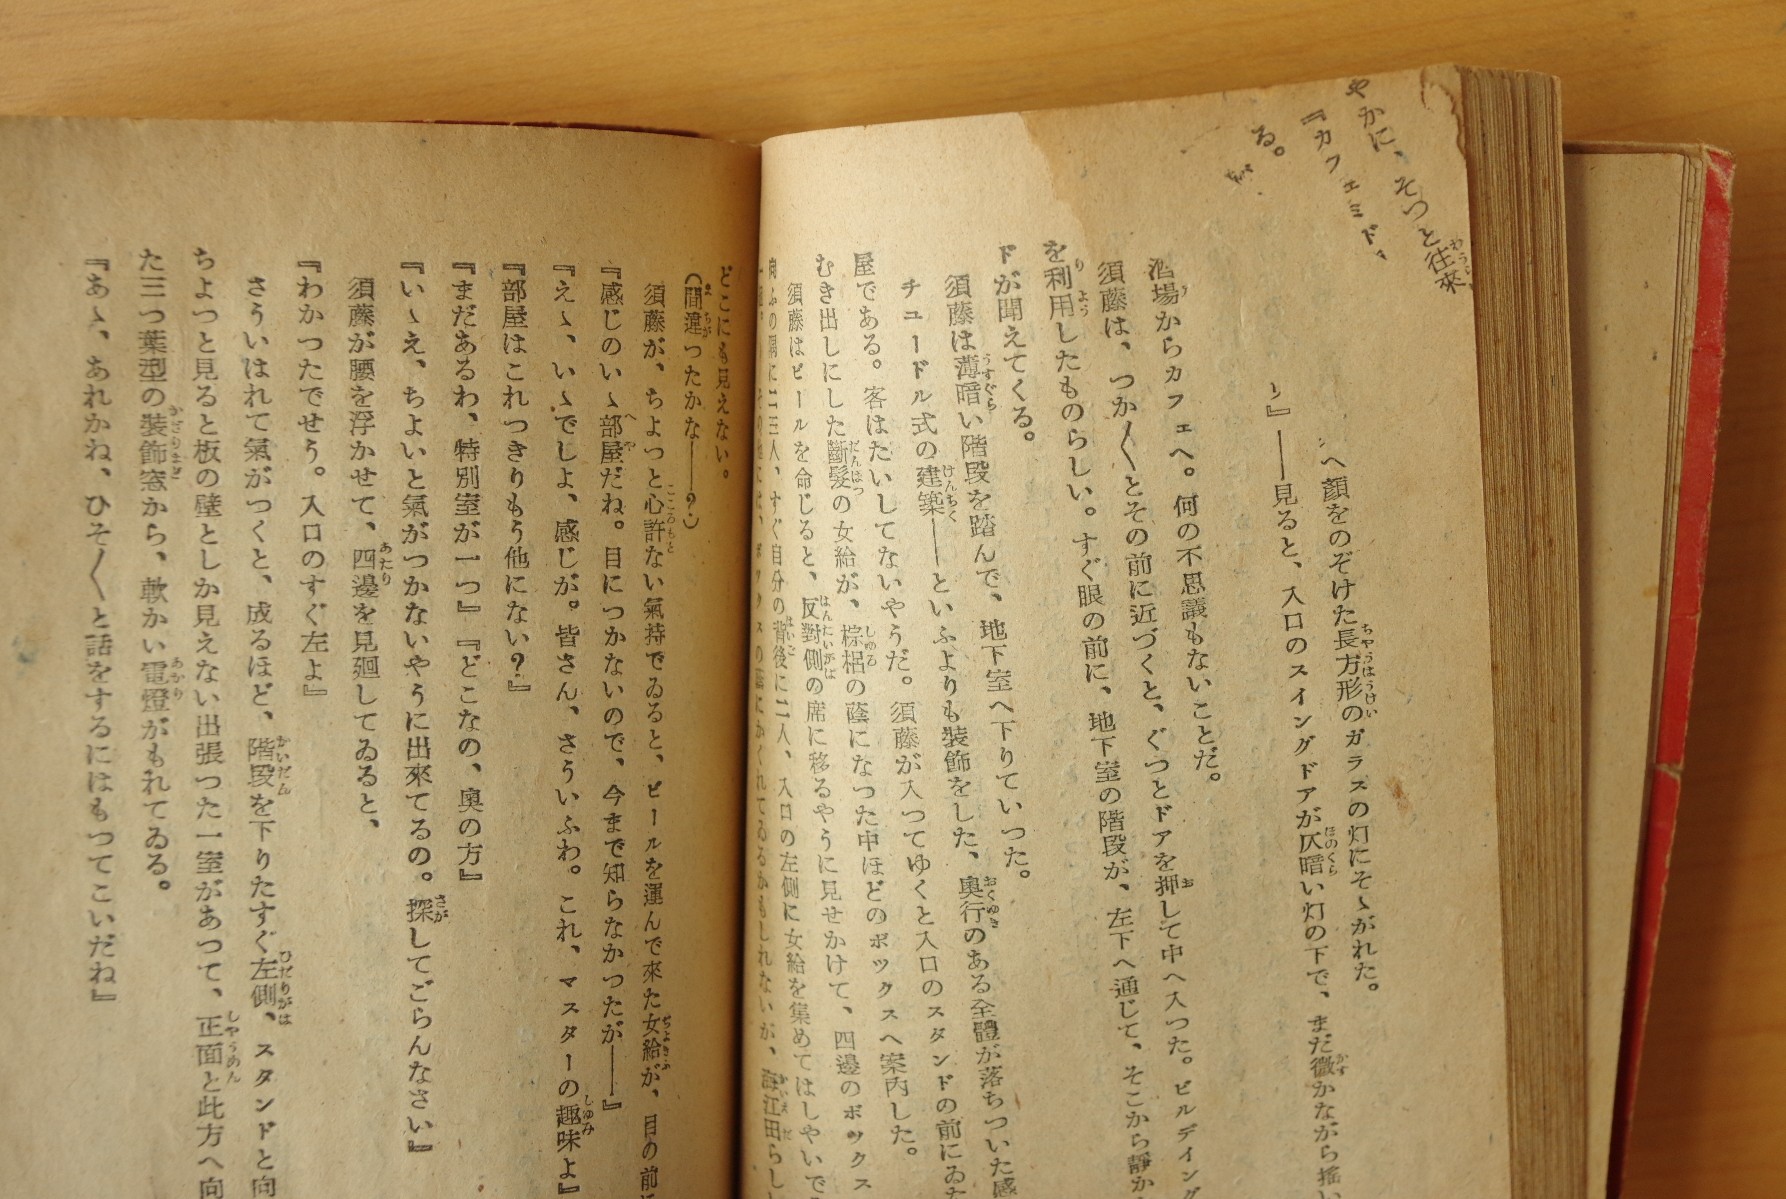 やかに、そつと往來
『カフェミド、
る。
へ顏をのぞけた長方形のガラスの灯にそゝがれた。
』――見ると、入口のスイングドアが仄暗い灯の下で、まだ微かながら搖い
酒場からカフェへ。何の不思議もないことだ。
須藤は、つか〳〵とその前に近づくと、ぐつとドアを押して中へ入つた。ビルディング
を利用したものらしい。すぐ眼の前に、地下室の階段が、左下へ通じて、そこから靜か
ドが聞えてくる。
須藤は薄暗い階段を踏んで、地下室へ下りていつた。
チュードル式の建築――といふよりも裝飾をした、奧行のある全體が落ちついた感
屋である。客はたいしてないやうだ。須藤が入つてゆくと入口のスタンドの前にゐた
むき出しにした斷髮の女給が、棕梠の蔭になつた中ほどのボックスへ案内した。
須藤はビールを命じると、反對側の席に移るやうに見せかけて、四邊のボックス
向ふの隅に二三人、すぐ自分の背後に二人、入口の左側に女給を集めてはしやいで
には、ボックスの蔭にかくれてゐるかもしれないが、海江田らし
どこにも見えない。
（間違つたかな――？）
須藤が、ちよつと心許ない氣持でゐると、ビールを運んで來た女給が、目の前
『感じのいゝ部屋だね。目につかないので、今まで知らなかつたが――』
『えゝ、いゝでしよ、感じが。皆さん、さういふわ。これ、マスターの趣味よ』
『部屋はこれつきりもう他にない？』
『まだあるわ、特別室が一つ』『どこなの、奧の方』
『いゝえ、ちよいと氣がつかないやうに出來てるの。探してごらんなさい』
須藤が腰を浮かせて、四邊を見廻してゐると、
『わかつたでせう。入口のすぐ左よ』
さういはれて氣がつくと、成るほど、階段を下りたすぐ左側、スタンドと向
ちよつと見ると板の壁としか見えない出張つた一室があつて、正面と此方へ向
た三つ葉型の裝飾窓から、軟かい電燈がもれてゐる。
『あゝ、あれかね、ひそ〳〵と話をするにはもつてこいだね』